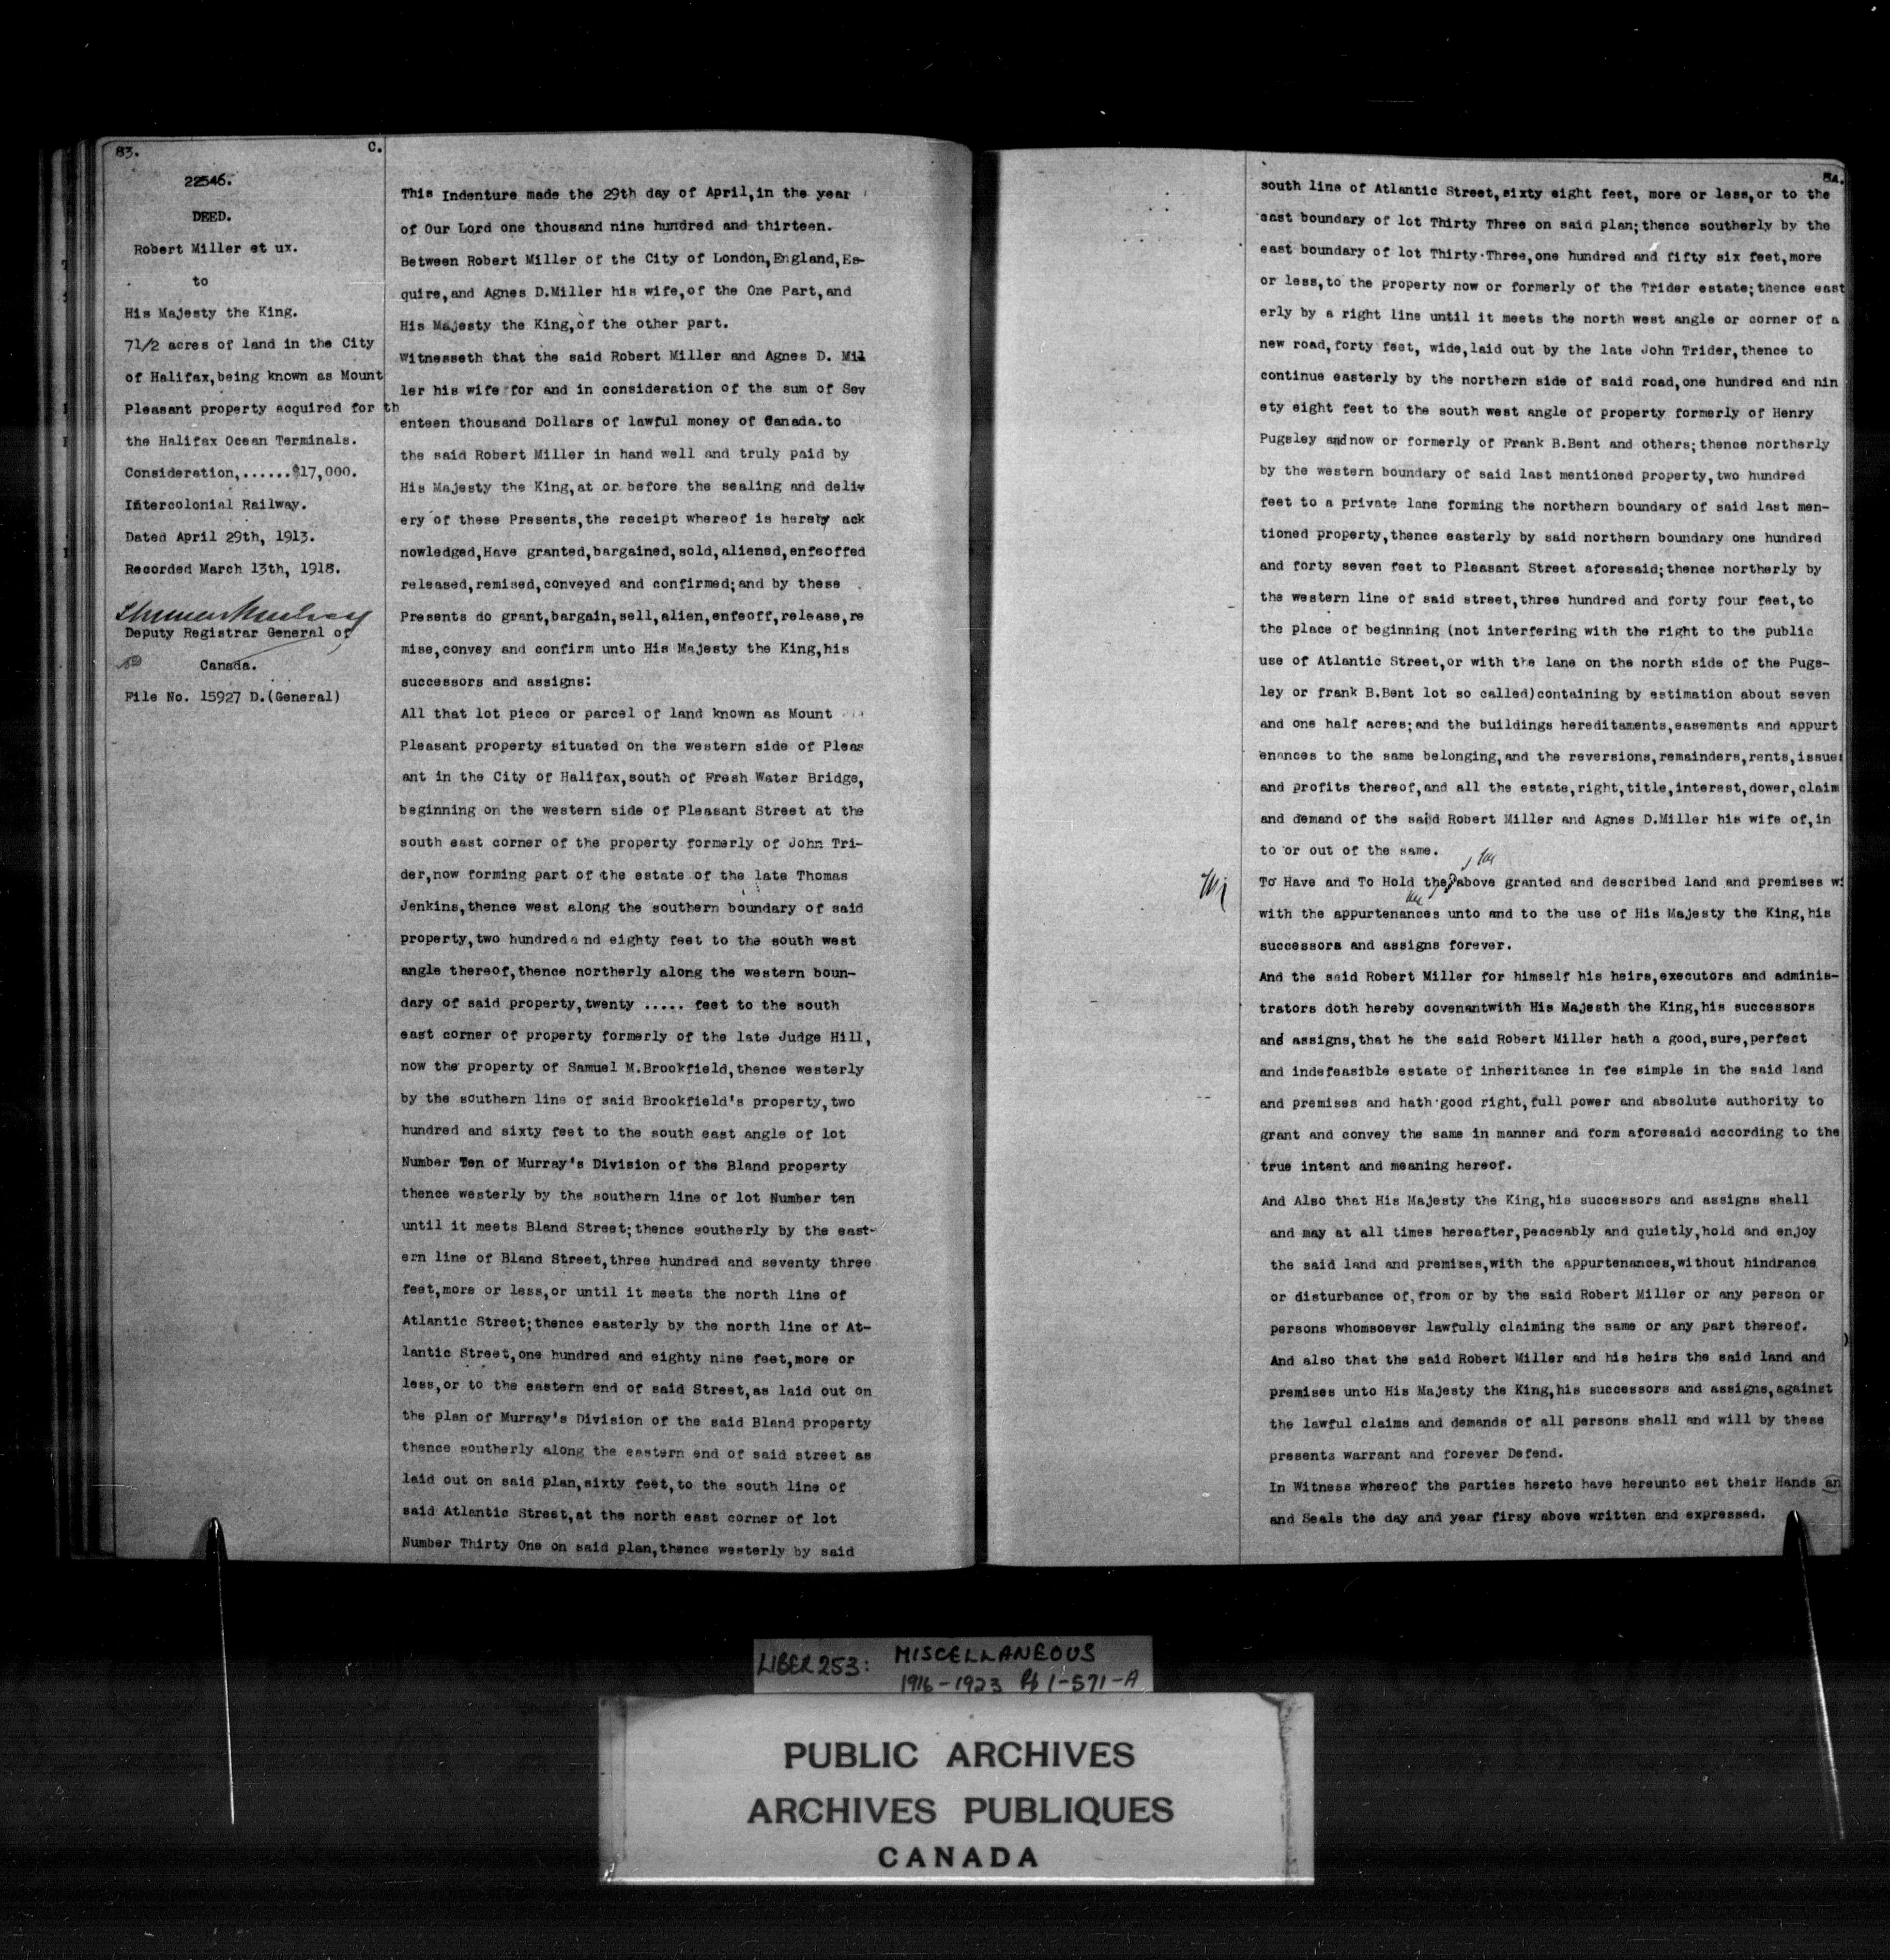 83.
C.
22546.
DEED.
Robert Miller et ux.
to
His Majesty the King.
71/2 acres of land in the City
of Halifax,being known as Mount
Pleasant property acquired for th
the Halifax Ocean Terminals.
Consideration,......$17,000.
Intercolonial Railway.
Dated April 29th, 1913.
Recorded March 13th, 1918.
Deputy Registrar General of
Canada.
File No. 15927 D.(General)
This Indenture made the 29th day of April,in the year
of Our Lord one thousand nine hundred and thirteen.
Between Robert Miller of the City of London,England,Es-
quire,and Agnes D.Miller his wife,of the One Part,and
His Majesty the King,of the other part.
Witnesseth that the said Robert Miller and Agnes D. Mil
ler his wife for and in consideration of the sum of Sev
enteen thousand Dollars of lawful money of Canada.to
the said Robert Miller in hand well and truly paid by
His Majesty the King,at or before the sealing and deliv
ery of these Presents,the receipt whereof is hereby ack
nowledged,Have granted,bargained,sold,aliened,enfeoffed
released,remised,conveyed and confirmed;and by these
Presents do grant,bargain,sell,alien,enfeoff,release,re
mise,convey and confirm unto His Majesty the King,his
successors and assigns:
All that lot piece or parcel of land known as Mount
Pleasant property situated on the western side of Pleas
ant in the City of Halifax,south of Fresh Water Bridge,
beginning on the western side of Pleasant Street at the
south east corner of the property formerly of John Tri-
der,now forming part of the estate of the late Thomas
Jenkins,thence west along the southern boundary of said
property,two hundred and eighty feet to the south west
angle thereof,thence northerly along the western boun-
dary of said property,twenty ..... feet to the south
east corner of property formerly of the late Judge Hill,
now the property of Samuel M.Brookfield,thence westerly
by the southern line of said Brookfield's property,two
hundred and sixty feet to the south east angle of lot
Number Ten of Murray's Division of the Bland property
thence westerly by the southern line of lot Number ten
until it meets Bland Street;thence southerly by the east-
ern line of Bland Street,three hundred and seventy three
feet,more or less,or until it meets the north line of
Atlantic Street;thence easterly by the north line of At-
lantic Street,one hundred and eighty nine feet,more or
less,or to the eastern end of said Street,as laid out on
the plan of Murray's Division of the said Bland property
thence southerly along the eastern end of said street as
laid out on said plan,sixty feet,to the south line of
said Atlantic Street,at the north east corner of lot
Number Thirty One on said plan,thence westerly by said
84.
south line of Atlantic Street,sixty eight feet, more or less,or to the
east boundary of lot Thirty Three on said plan;thence southerly by the
east boundary of lot Thirty Three,one hundred and fifty six feet,more
or less,to the property now or formerly of the Trider estate;thence east
erly by a right line until it meets the north west angle or corner of a
new road,forty feet, wide,laid out by the late John Trider,thence to
continue easterly by the northern side of said road,one hundred and nin
ety eight feet to the south west angle of property formerly of Henry
Pugsley and now or formerly of Frank B.Bent and others;thence northerly
by the western boundary of said last mentioned property,two hundred
feet to a private lane forming the northern boundary of said last men-
tioned property,thence easterly by said northern boundary one hundred
and forty seven feet to Pleasant Street aforesaid;thence northerly by
the western line of said street,three hundred and forty four feet,to
the place of beginning (not interfering with the right to the public
use of Atlantic Street,or with the lane on the north side of the Pugs-
ley or frank B.Bent lot so called)containing by estimation about seven
and one half acres;and the buildings hereditaments,easements and appurt
enances to the same belonging,and the reversions,remainders,rents,issues
and profits thereof,and all the estate,right,title,interest,dower,claim
and demand of the said Robert Miller and Agnes D.Miller his wife of,in
to or out of the same.
To Have and To Hold the above granted and described land and premises wi
with the appurtenances unto and to the use of His Majesty the King,his
successors and assigns forever.
And the said Robert Miller for himself his heirs,executors and adminis-
trators doth hereby covenantwith His Majesth the King,his successors
and assigns,that he the said Robert Miller hath a good,sure,perfect
and indefeasible estate of inheritance in fee simple in the said land
and premises and hath good right,full power and absolute authority to
grant and convey the same in manner and form aforesaid according to the
true intent and meaning hereof.
And Also that His Majesty the King,his successors and assigns shall
and may at all times hereafter,peaceably and quietly,hold and enjoy
the said land and premises,with the appurtenances,without hindrance
or disturbance of,from or by the said Robert Miller or any person or
persons whomsoever lawfully claiming the same or any part thereof.
And also that the said Robert Miller and his heirs the said land and
premises unto His Majesty the King,his successors and assigns,against
the lawful claims and demands of all persons shall and will by these
presents warrant and forever Defend.
In Witness whereof the parties hereto have hereunto set their Hands an
and Seals the day and year firsy above written and expressed.
LIBER 253: MISCELLANEOUS
1916-1923 Pp 1-571-A
PUBLIC ARCHIVES
ARCHIVES PUBLIQUES
CANADA